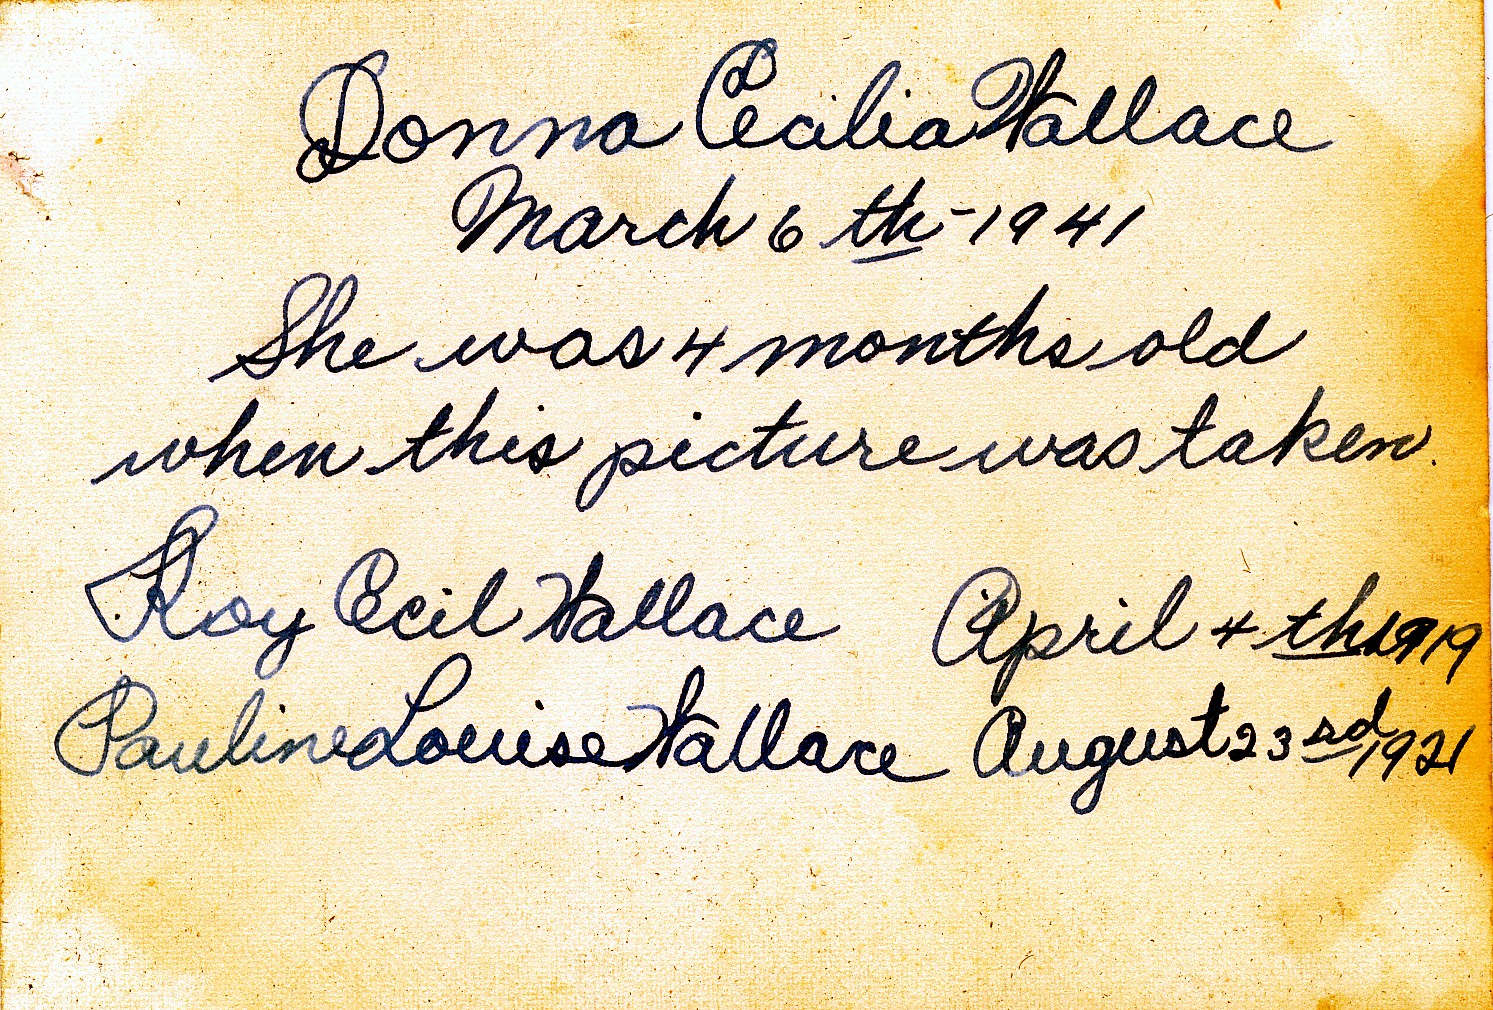 Donna Cecilia Wallace
March 6th-1941
She was 4 months old
when this picture was taken.
Roy Cecil Wallace April 4th 1919
Pauline Louise Wallace August 23rd 1921